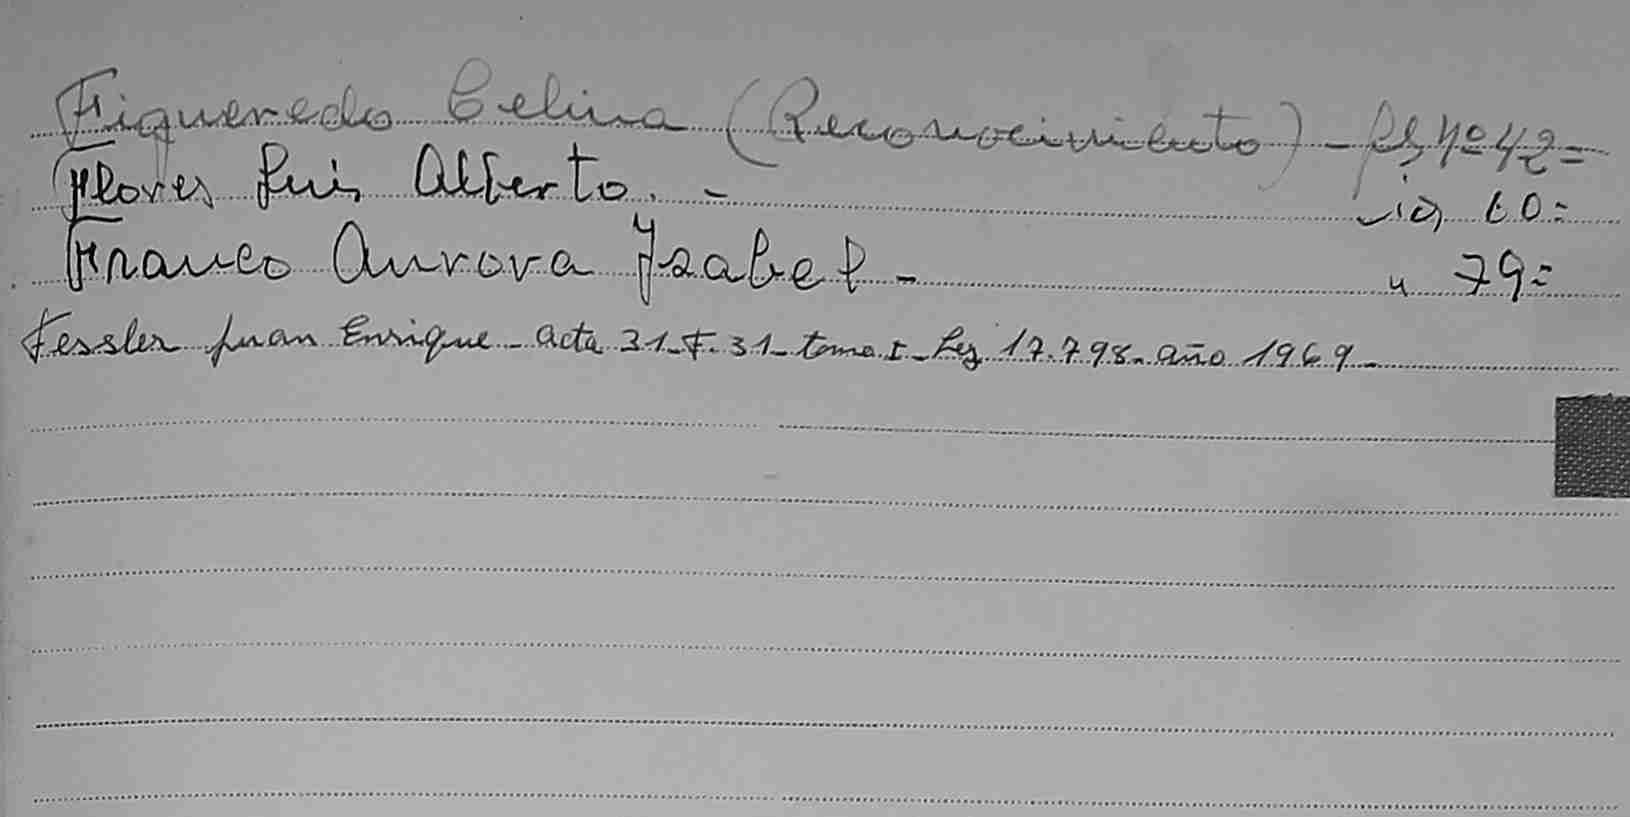 Figueredo Celina (Reconocimiento) - fs, Nº 42=
Flores Luis Alberto. - 60=
Franco Aurora Ysabel - " 79=
Fessler Juan Enrique - acta 31 - F. 31 - tomo I - Ley 17.798 - año 1969 -